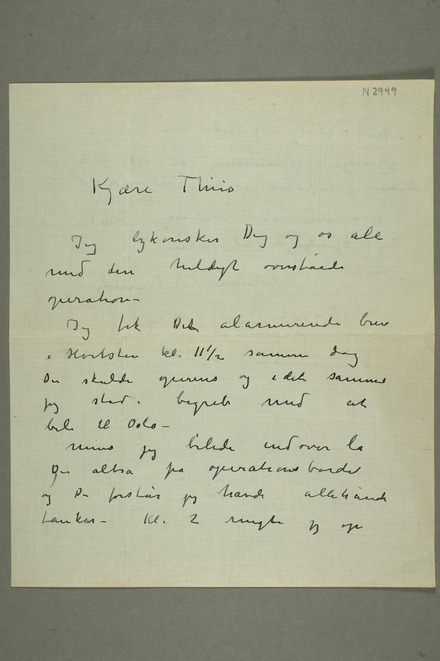 N 2949
Kjære Thiis
Jeg lykønsker Dig og os alle
med den heldigt overståede
operation –
Jeg fik Dit alarmerende brev
i Hvitsten kl. 11 1/2 samme dag
Du skulde opereres og i det samme
jeg stod i begreb med at
bile til Oslo –
mens jeg bilede indover la
Du altså på operationsbordet
og Du forstår jeg havde allehånde
tanker – Kl. 2 ringte jeg op